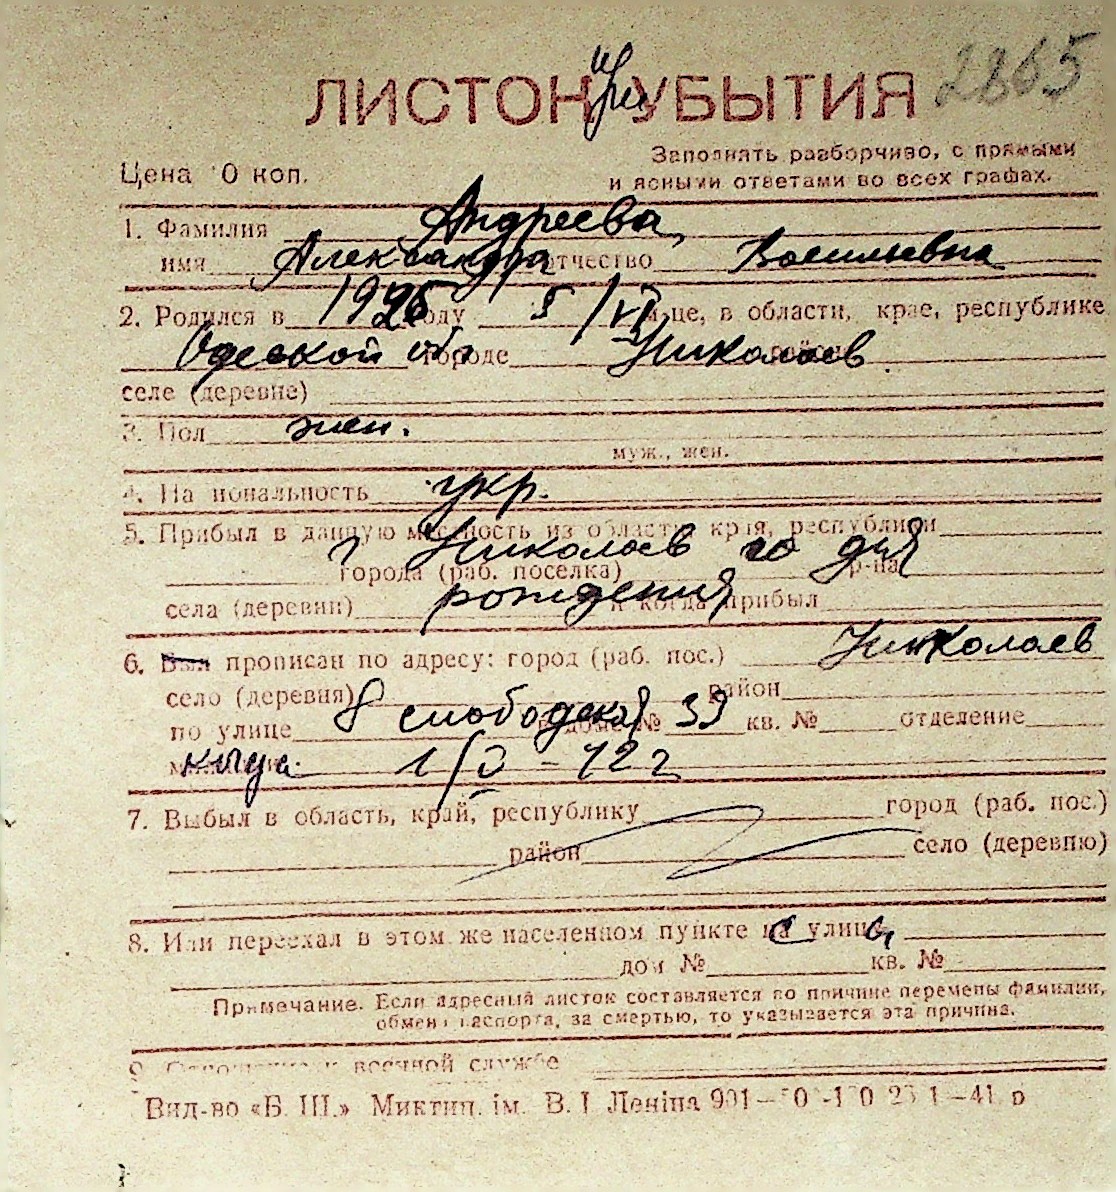 2865
ЛИСТОК при УБЫТИЯ
Цена 10 коп.
Заполнять разборчиво, с прямыми
и ясными ответами во всех графах.
1. Фамилия Андреева
имя Александра отчество Васильевна
2. Родился в 1926 году 5/VI м-це, в области, крае, республике
Одеской обл городе Николаев район
селе (деревне)
3. Пол жен.
муж., жен.
4. Национальность укр.
5. Прибыл в данную местность из области, края, республики
г Николаев со дня
города (раб. поселка) р-на
села (деревни) рождения и когда прибыл
6. Был прописан по адресу: город (раб. пос.) Николаев
село (деревня) район
по улице 8 слободская в доме № 39 кв. № отделение
7. Выбыл в область, край, республику город (раб. пос.)
район село (деревню)
8. Или переехал в этом же населенном пункте с улицы
дом № кв. №
Примечание. Если адресный листок составляется по причине перемены фамилии,
обмена паспорта, за смертью, то указывается эта причина.
9. Отношение к военной службе
Вид-во «Б. Ш.» Миктип. ім. В. І. Леніна